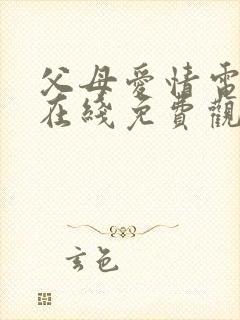 父母愛情電
在綫免費觀
玄色